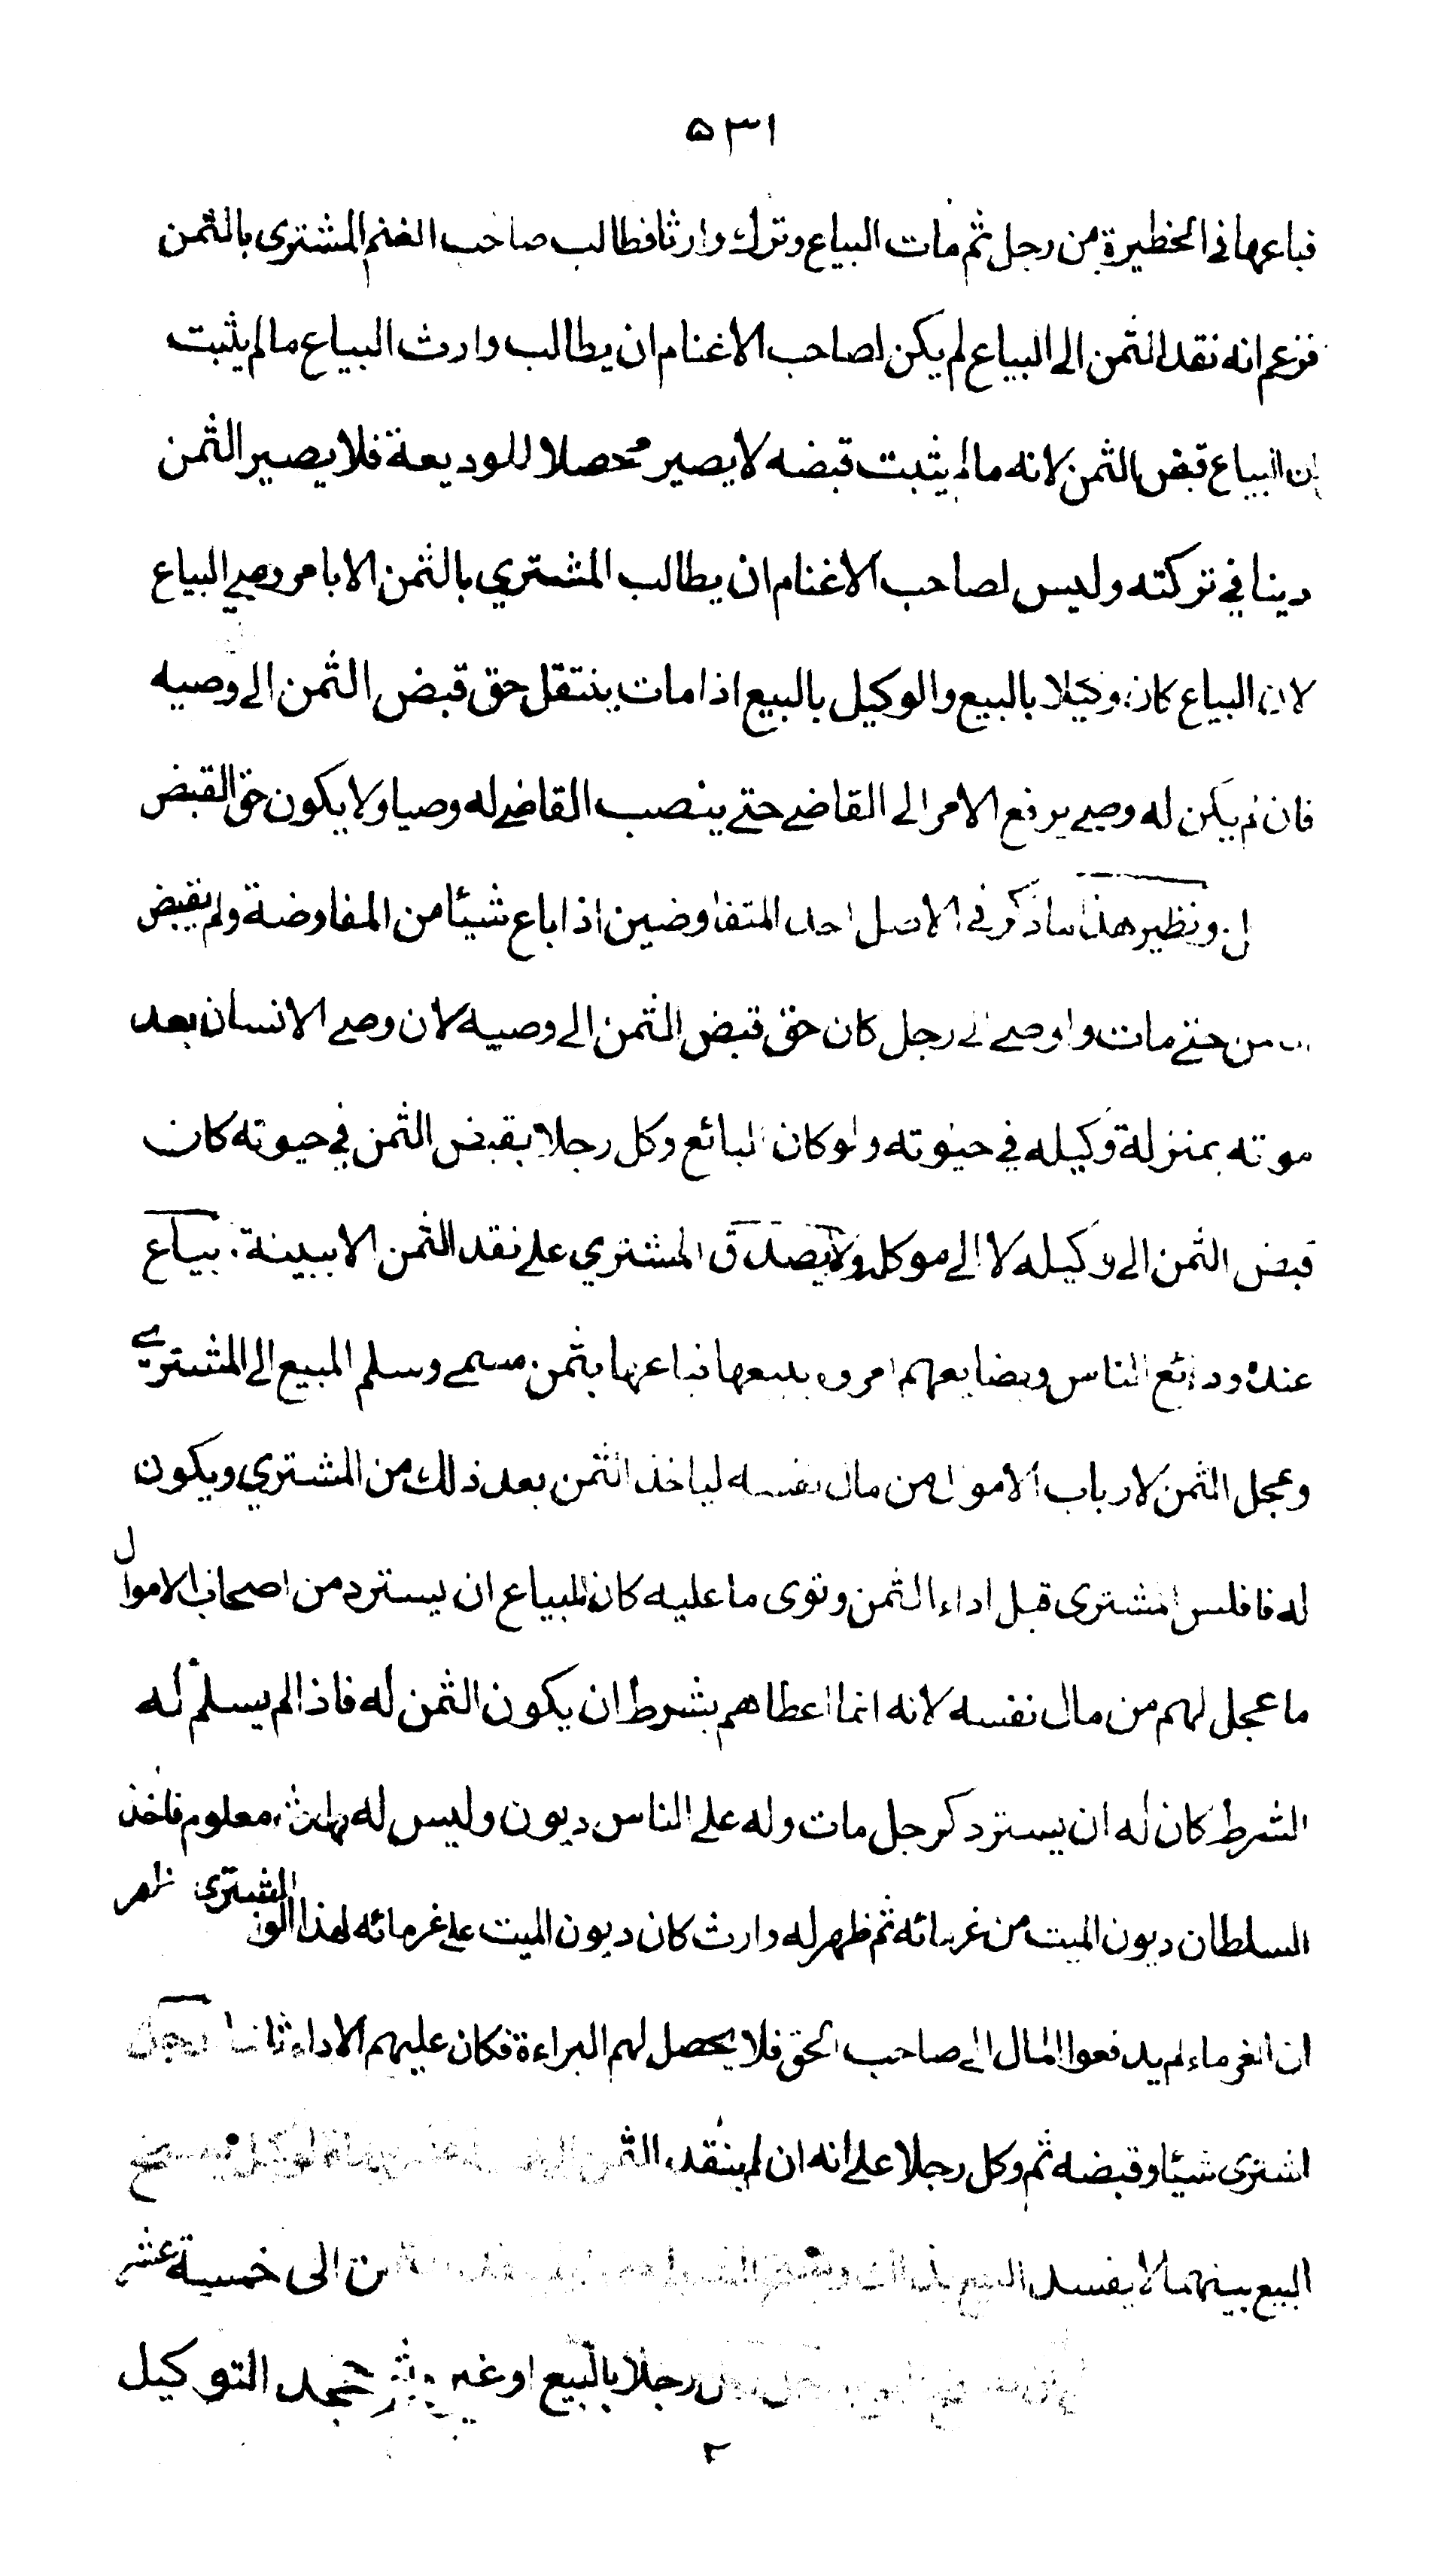 ٥٣١
فباعها في الحظيرة من رجل ثم مات البياع وترك وارثا فطالب صاحب الغنم المشتري بالثمن
فزعم انه نقد الثمن الى البياع لم يكن لصاحب الاغنام ان يطالب وارث البياع مالم يثبت
ان البياع قبض الثمن لانه مالم يثبت قبضه لا يصير محصلا للوديعة فلا يصير الثمن
دينا في تركته وليس لصاحب الاغنام ان يطالب المشتري بالثمن الا بامر وصي البياع
لان البياع كان وكيلا بالبيع والوكيل بالبيع اذا مات ينتقل حق قبض الثمن الى وصيه
فان لم يكن له وصي يرفع الامر الى القاضي حتى ينصب القاضي له وصيا ولا يكون حق القبض
ونظير هذا ما ذكر في الاصل احد المتفاوضين اذا باع شيئا من المفاوضة ولم يقبض
حتى مات واوصى الى رجل كان حق قبض الثمن الى وصيه لان وصي الانسان بعد
موته بمنزلة وكيله في حيوته ولو كان البائع وكل رجلا بقبض الثمن في حيوته كان
قبض الثمن الى وكيله لا الى موكله ولا يصدق المشتري على نقد الثمن الا ببينة بياع
عنده ودائع الناس وبضايعهم امروه ببيعها فباعها بثمن مسمى وسلم المبيع الى المشتري
وعجل الثمن لارباب الاموال من مال نفسه لياخذ الثمن بعد ذلك من المشتري ويكون
له فافلس المشتري قبل اداء الثمن وتوى ما عليه كان للبياع ان يسترد من اصحاب الاموال
ما عجل لهم من مال نفسه لانه انما اعطاهم بشرط ان يكون الثمن له فاذا لم يسلم له
الشرط كان له ان يسترد كرجل مات وله على الناس ديون وليس له وارث معلوم فاخذ
السلطان ديون الميت من غرمائه ثم ظهر له وارث كان ديون الميت على غرمائه لهذا الوز المشتري ظهر
ان الغرماء لم يدفعوا المال الى صاحب الحق فلا يحصل لهم البراءة فكان عليهم الاداء ثانيا رجل
اشترى شيئا وقبضه ثم وكل رجلا على انه ان لم ينقد الثمن
البيع بينهما لا يفسد البيع الى خمسة عشر
رجلا بالبيع او غيره جحد التوكيل
٢